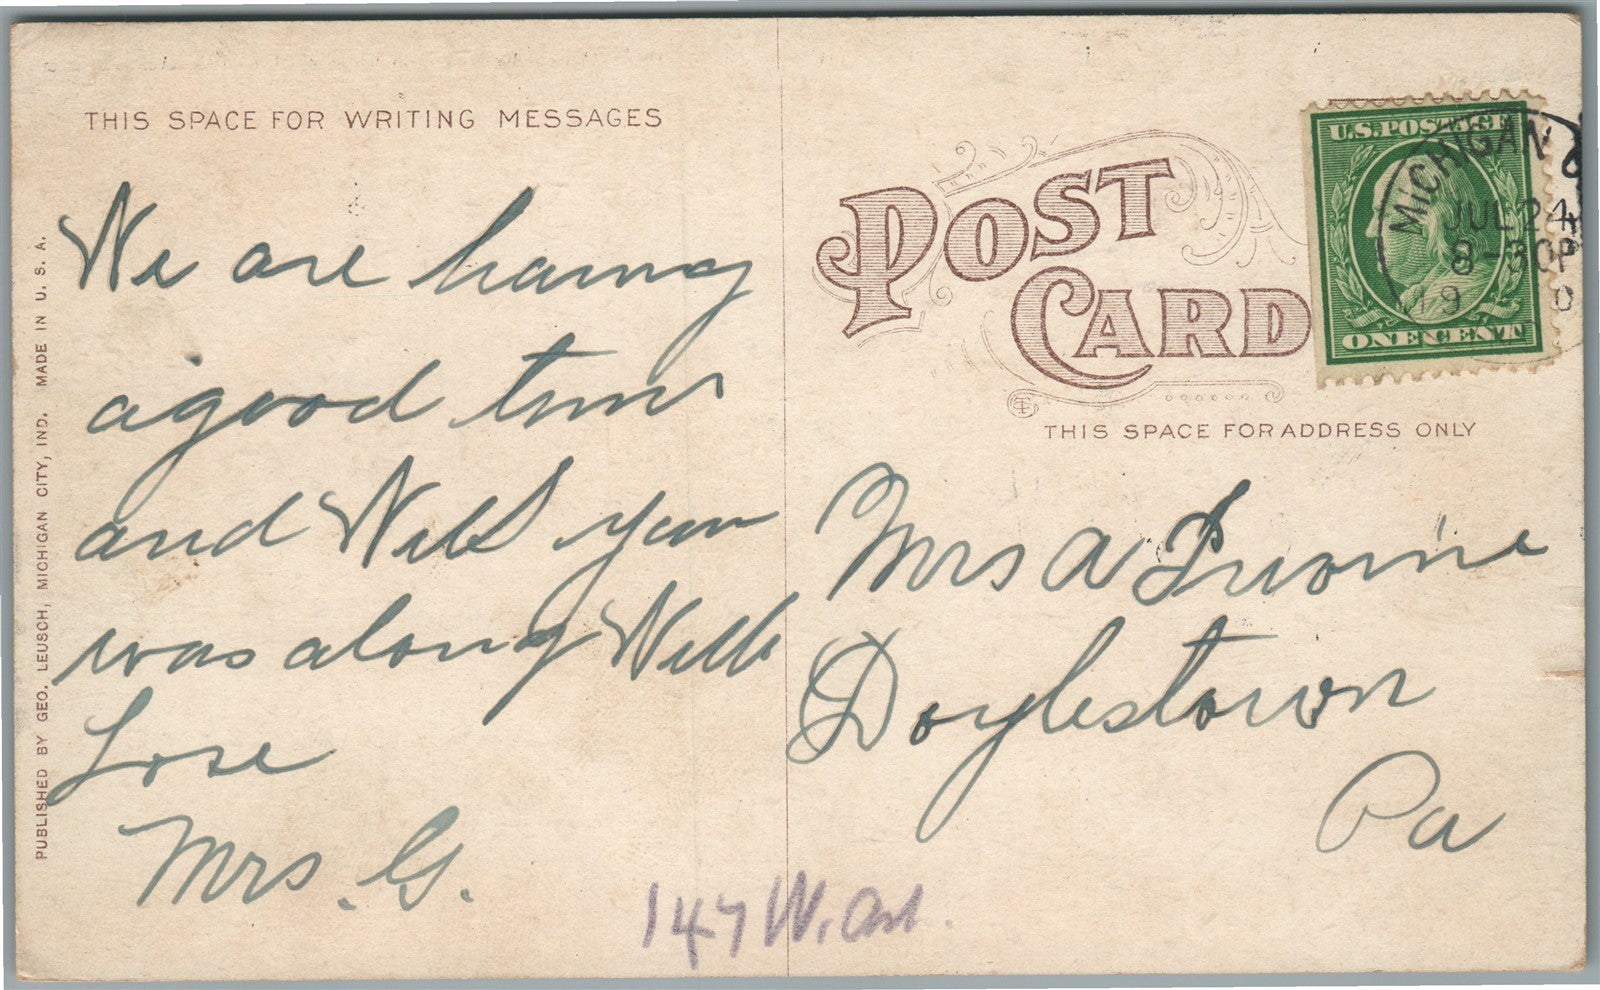 THIS SPACE FOR WRITING MESSAGES
We are having
a good time
and Wish you
was along With
Love
Mrs. G.
PUBLISHED BY GEO. LEUSCH, MICHIGAN CITY, IND. MADE IN U.S.A.
POST
CARD
THIS SPACE FOR ADDRESS ONLY
U.S. POSTAGE
ONE CENT
MICHIGAN
JUL 24
8-30P
19 0
Mrs A
Doylestown
Pa
147 W.